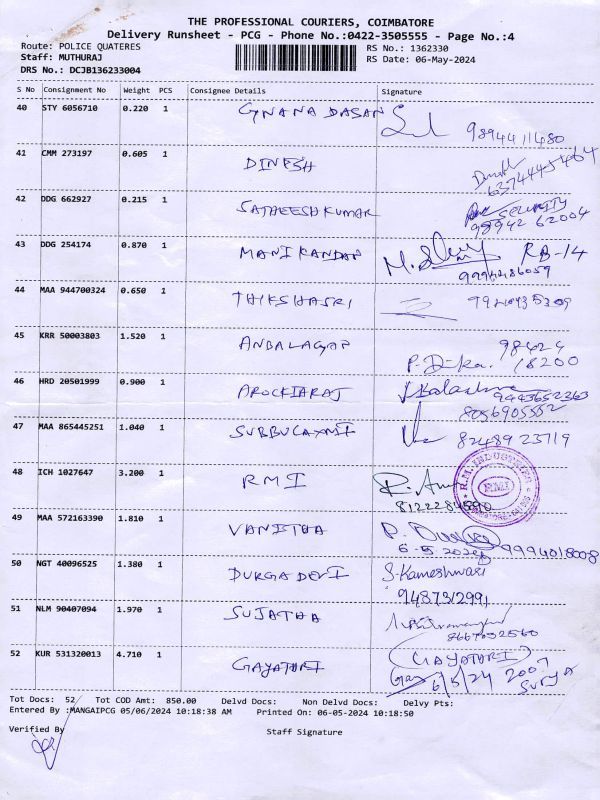 THE PROFESSIONAL COURIERS, COIMBATORE
Delivery Runsheet - PCG - Phone No.:0422-3505555 - Page No.:4
Route: POLICE QUATERES RS No.: 1362330
Staff: MUTHURAJ RS Date: 06-May-2024
DRS No.: DCJB136233004
S No Consignment No Weight PCS Consignee Details Signature
40 STY 6056710 0.220 1 GNANA DASAN
9894411480
41 CMM 273197 0.605 1 DINESH
42 DDG 662927 0.215 1 SATHEESHKUMAR SECURITY
99942 62004
43 DDG 254174 0.870 1 MANIKANDAN RB-14
9994286059
44 MAA 944700324 0.650 1 THIKSHASRI
45 KRR 50003803 1.520 1 ANBALAGAP 98424
18200
46 HRD 20501999 0.900 1 AROCKIARAJ
9443652363
8056905552
47 MAA 865445251 1.040 1 SUBBULAXMI 82489 23719
48 ICH 1027647 3.200 1 RMI
R.M. INDUSTRIES
RMI
49 MAA 572163390 1.810 1 VANITHA
9994018008
50 NGT 40096525 1.380 1 DURGA DEVI S.Kameshwari
9487312991
51 NLM 90407094 1.970 1 SUJATHA
8667032560
52 KUR 531320013 4.710 1 GAYATHRI GAYATHRI
6/5/24 2007
SURYA
Tot Docs: 52 Tot COD Amt: 850.00 Delvd Docs: Non Delvd Docs: Delvy Pts:
Entered By :MANGAIPCG 05/06/2024 10:18:38 AM Printed On: 06-05-2024 10:18:50
Verified By Staff Signature